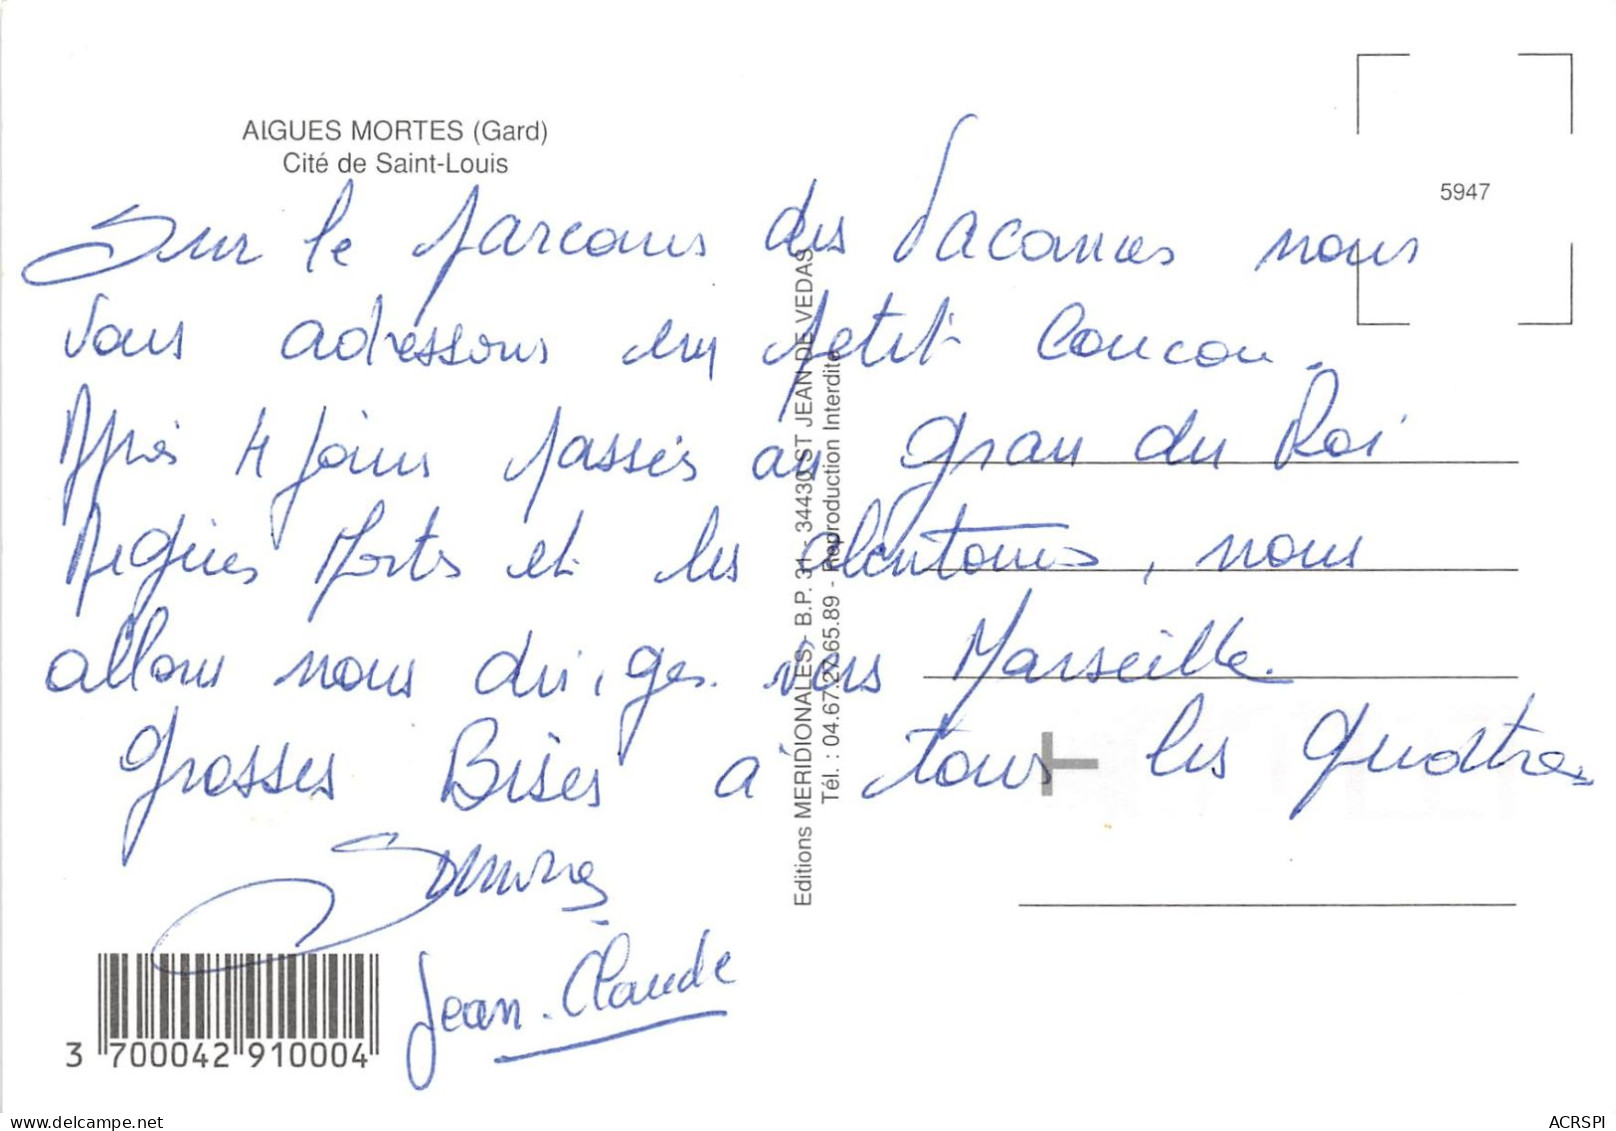 AIGUES MORTES (Gard)
Cité de Saint-Louis
5947
Sur le parcours des Vacances nous
vous adressons un petit Coucou.
Après 4 jours passés au grau du Roi
Aigues Mortes et les alentours, nous
allons nous diriger vers Marseille.
Grosses Bises à tous les quatres
Jean-Claude
Editions MERIDIONALES - B.P. 31 - 34430 ST JEAN DE VEDAS
Tél. : 04.67.27.65.89 - Reproduction Interdite
3 700042 910004
delcampe.net
ACRSPI